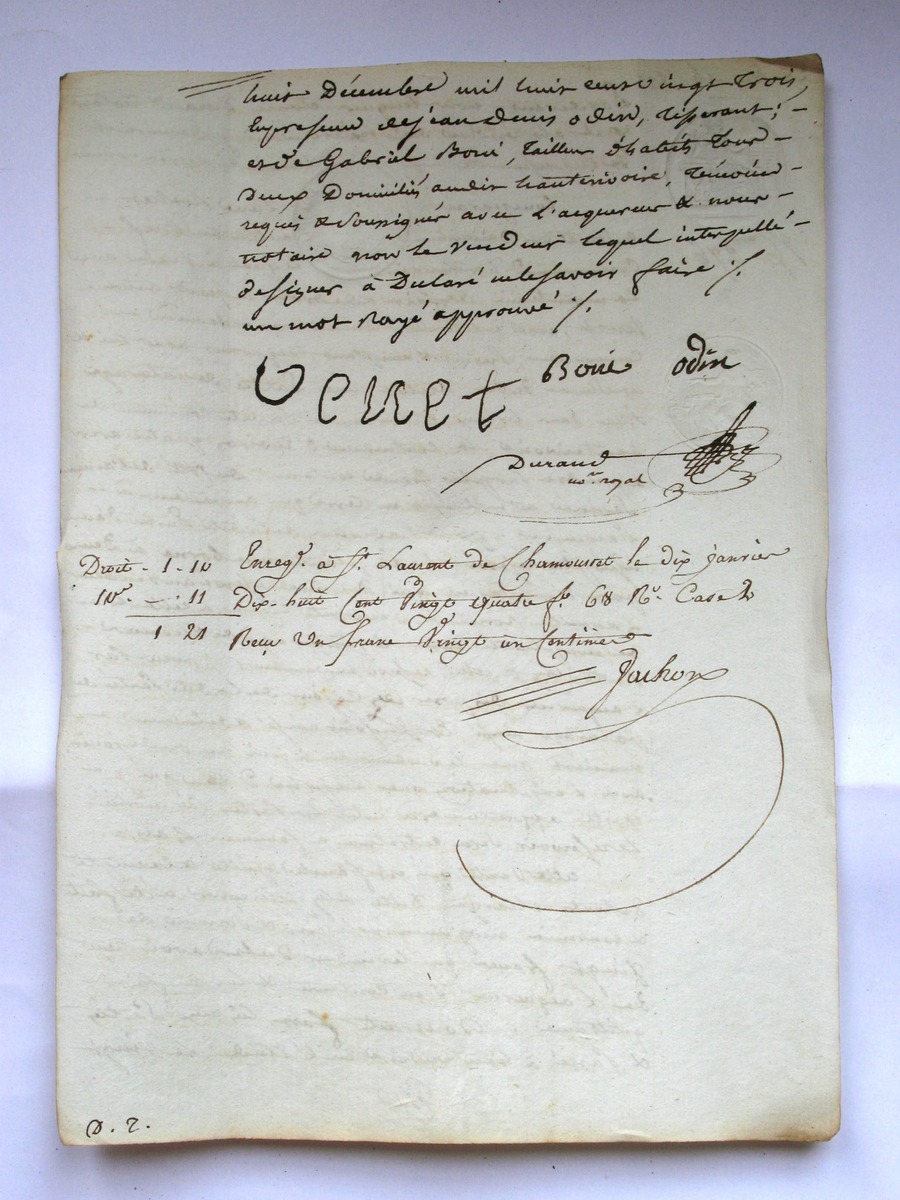 huit Décembre mil huit cent vingt trois
En presence de jean denis odin, tisserant;
et de Gabriel Boué, tailleur d'habits Tous-
Deux Domiciliés audit hauterivoire, Témoins
requis & Soussignés avec L'acquereur & nous-
notaire non le vendeur lequel interpellé-
de signer à Déclaré ne le savoir faire ./.
un mot Rayé approuvé ./.
Venet Boué odin
Durand
no.re royal
Droit - 1 - 10 Enreg.é à St. Laurent de Chamousset le dix janvier
10e - " 11 Dix-huit Cent Vingt quatre fo. 68 Ro. Case
1 21 Reçu Un franc Vingt un Centimes
Jachon
D. 2.